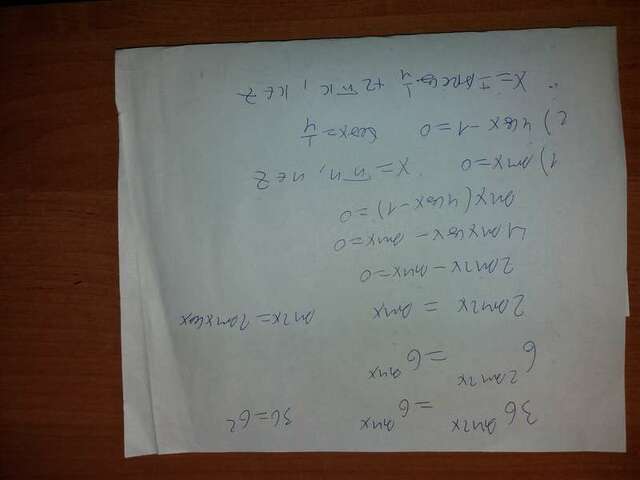 36^(sin2x) = 6^(sinx) 36=6²
6^(2sin2x) = 6^(sinx)
2sin2x = sinx sin2x = 2sinxcosx
2sin2x - sinx=0
4sinxcosx - sinx=0
sinx(4cosx-1)=0
1) sinx=0 x=πn, n∈Z
2) 4cosx-1=0 cosx=1/4
x=±arccos 1/4 +2πk, k∈Z